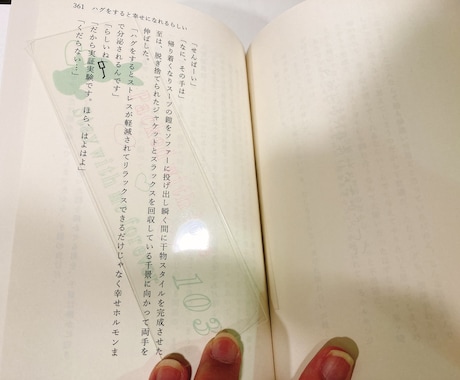 361 ハグをすると幸せになれるらしい
「せんぱーい」
「なに、その手は」
帰り着くなりスーツの鎧をソファーに投げ出し瞬く間に干物スタイルを完成させた
至は、脱ぎ捨てられたジャケットとスラックスを回収している千景に向かって両手を
伸ばした。
「ハグをするとストレスが軽減されてリラックスできるだけじゃなく幸せホルモンま
で分泌されるんです」
「らしいね」
「だから実証実験です。ほら、はよはよ」
「くだらない…」
103